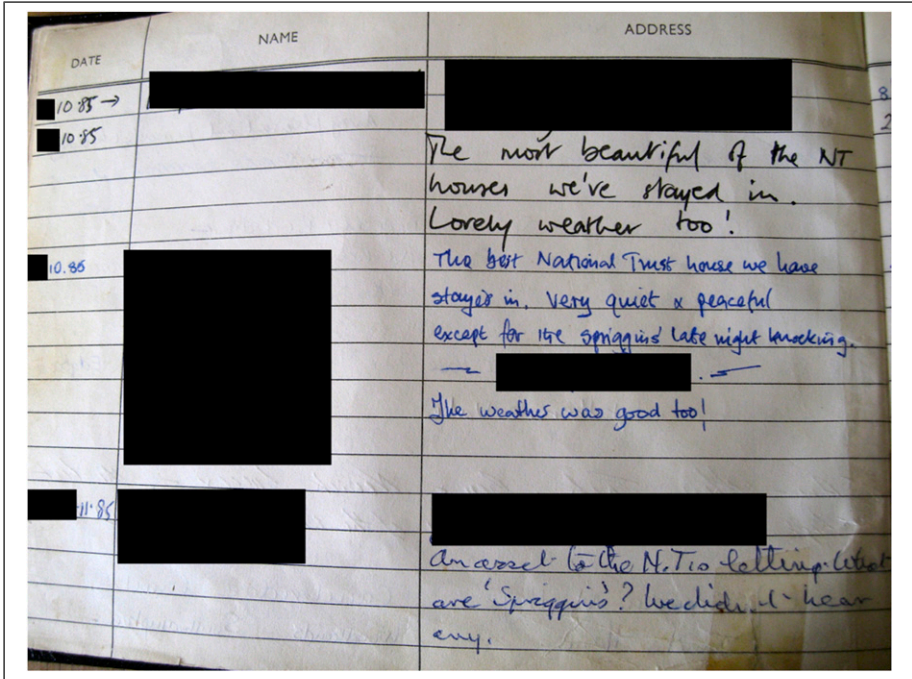 DATE NAME ADDRESS
10.85 →
10.85
The most beautiful of the NT
houses we've stayed in.
Lovely weather too!
10.85 The best National Trust house we have
stayed in. Very quiet & peaceful
except for the spriggins' late night knocking.
The weather was good too!
11.85
An asset to the N.T.'s letting. What
are 'Spriggins'? We didn't hear
any.